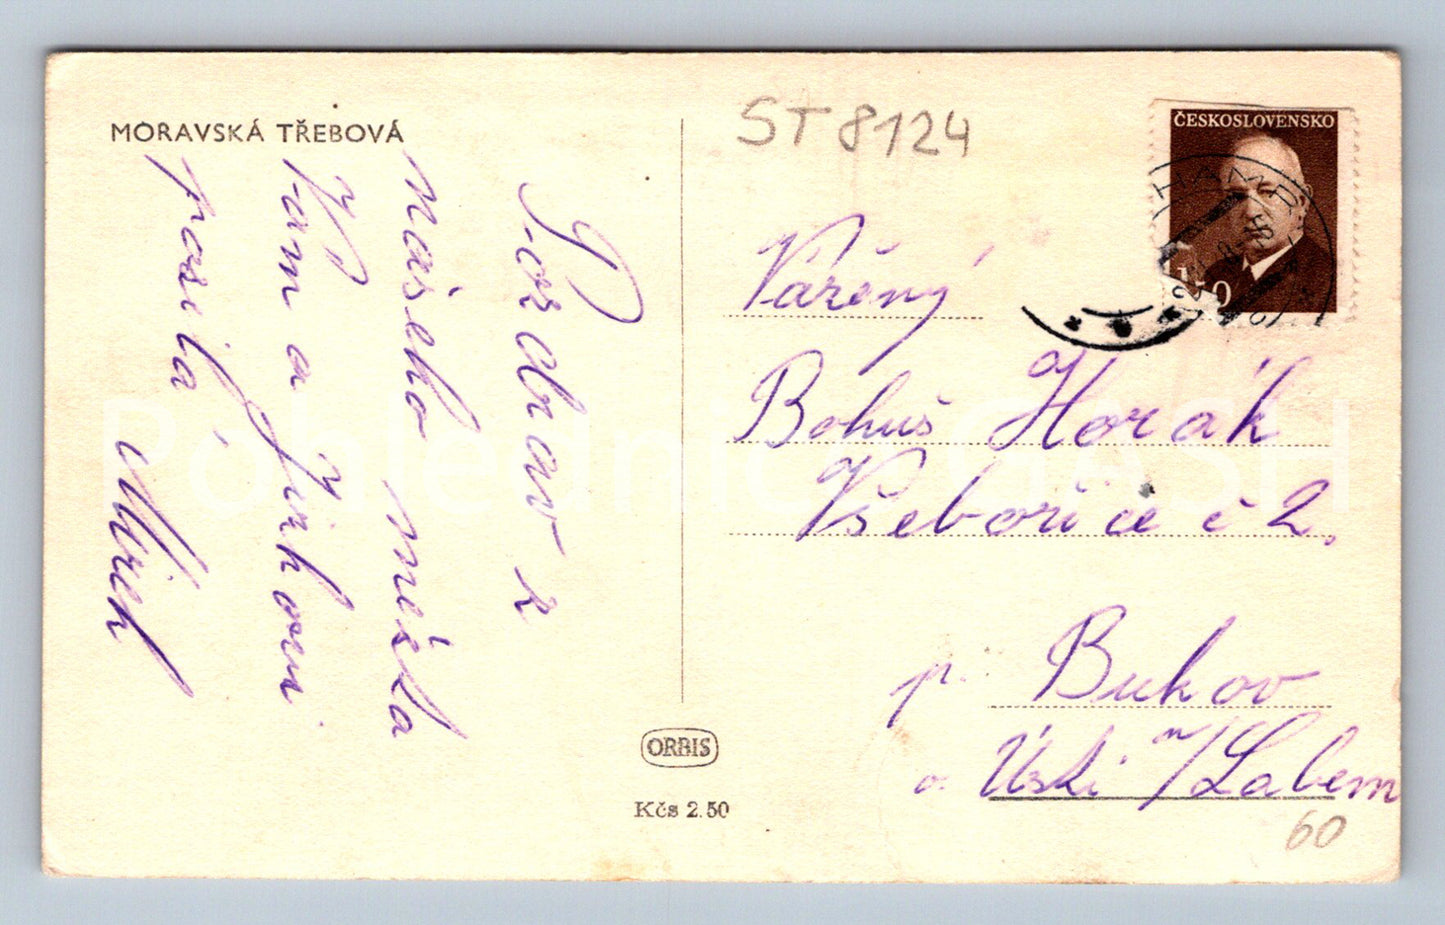 MORAVSKÁ TŘEBOVÁ
Pozdrav z
našeho města
Vám a Jirkovi
posílá
ST 8124
ČESKOSLOVENSKO
1
50
Vážený
Bohuš Horák
Všebořice č 2.
p. Bukov
o. Ústí n/Labem
60
ORBIS
Kčs 2.50
Pohlednice GASH